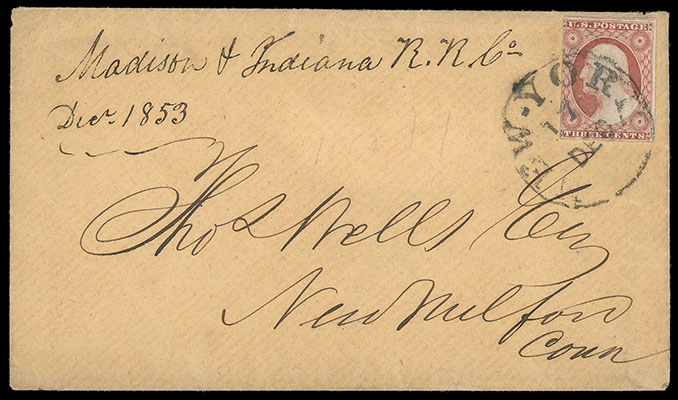 Madison & Indiana R. R. Co
Decr 1853
U.S. POSTAGE
THREE CENTS
NEW-YORK
DEC
Thos Wells Esq
New Milford
Conn